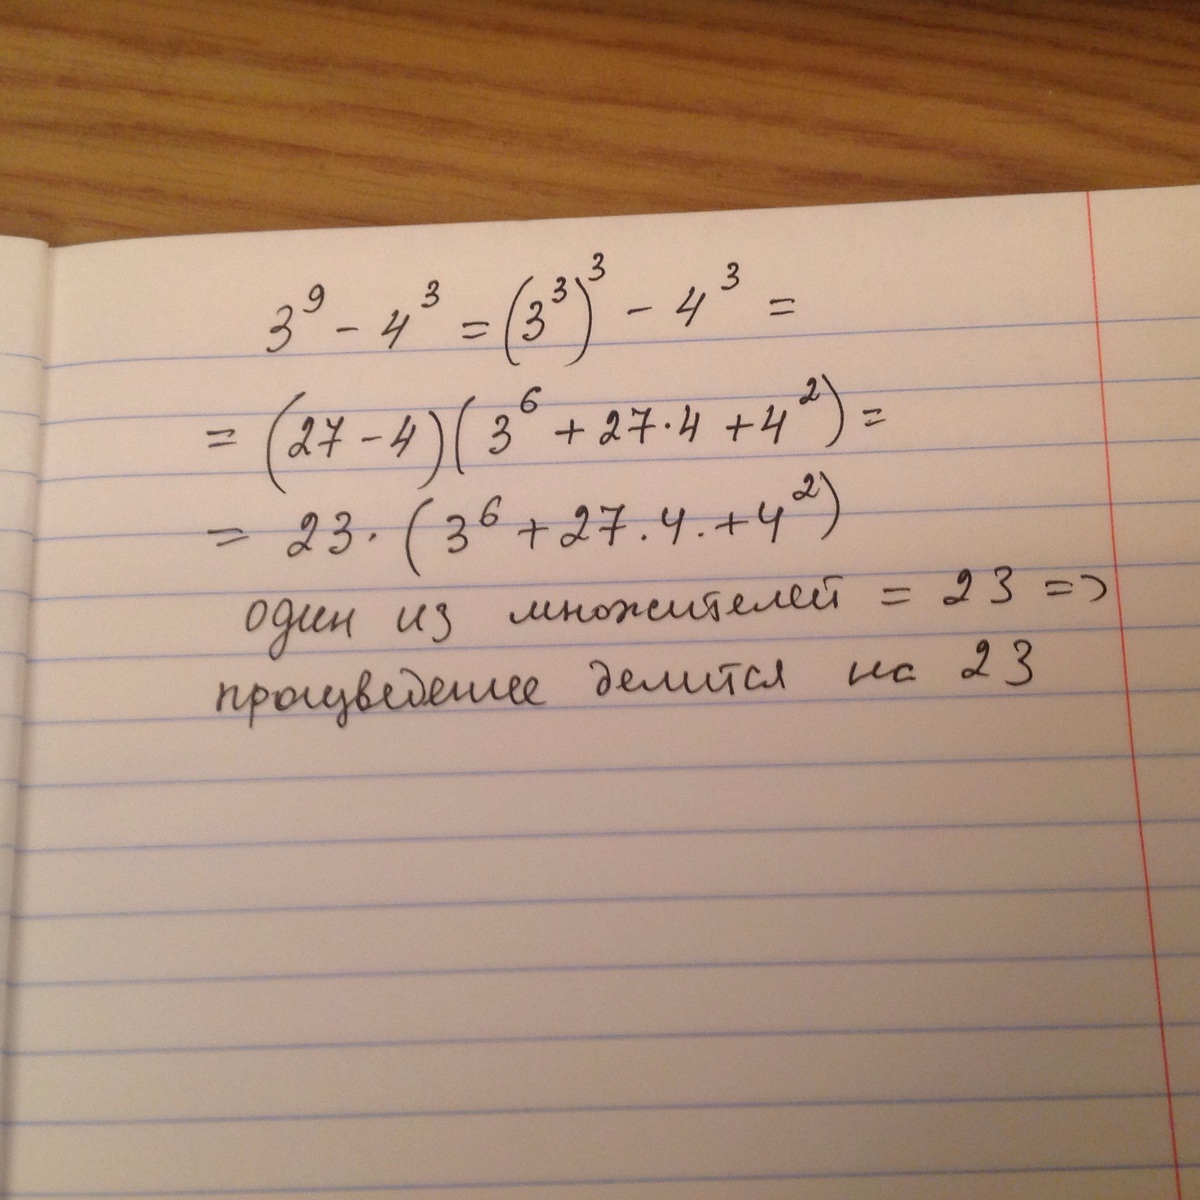 3⁹ - 4³ = (3³)³ - 4³ =
= (27 - 4)(3⁶ + 27·4 + 4²) =
= 23·(3⁶ + 27·4·+4²)
один из множителей = 23 =>
произведение делится на 23